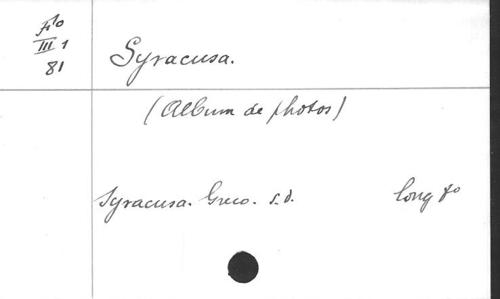 Fᵒ
III 1
81
Syracusa.
(Album de photos)
Syracusa. Greco. s.d. long fᵒ